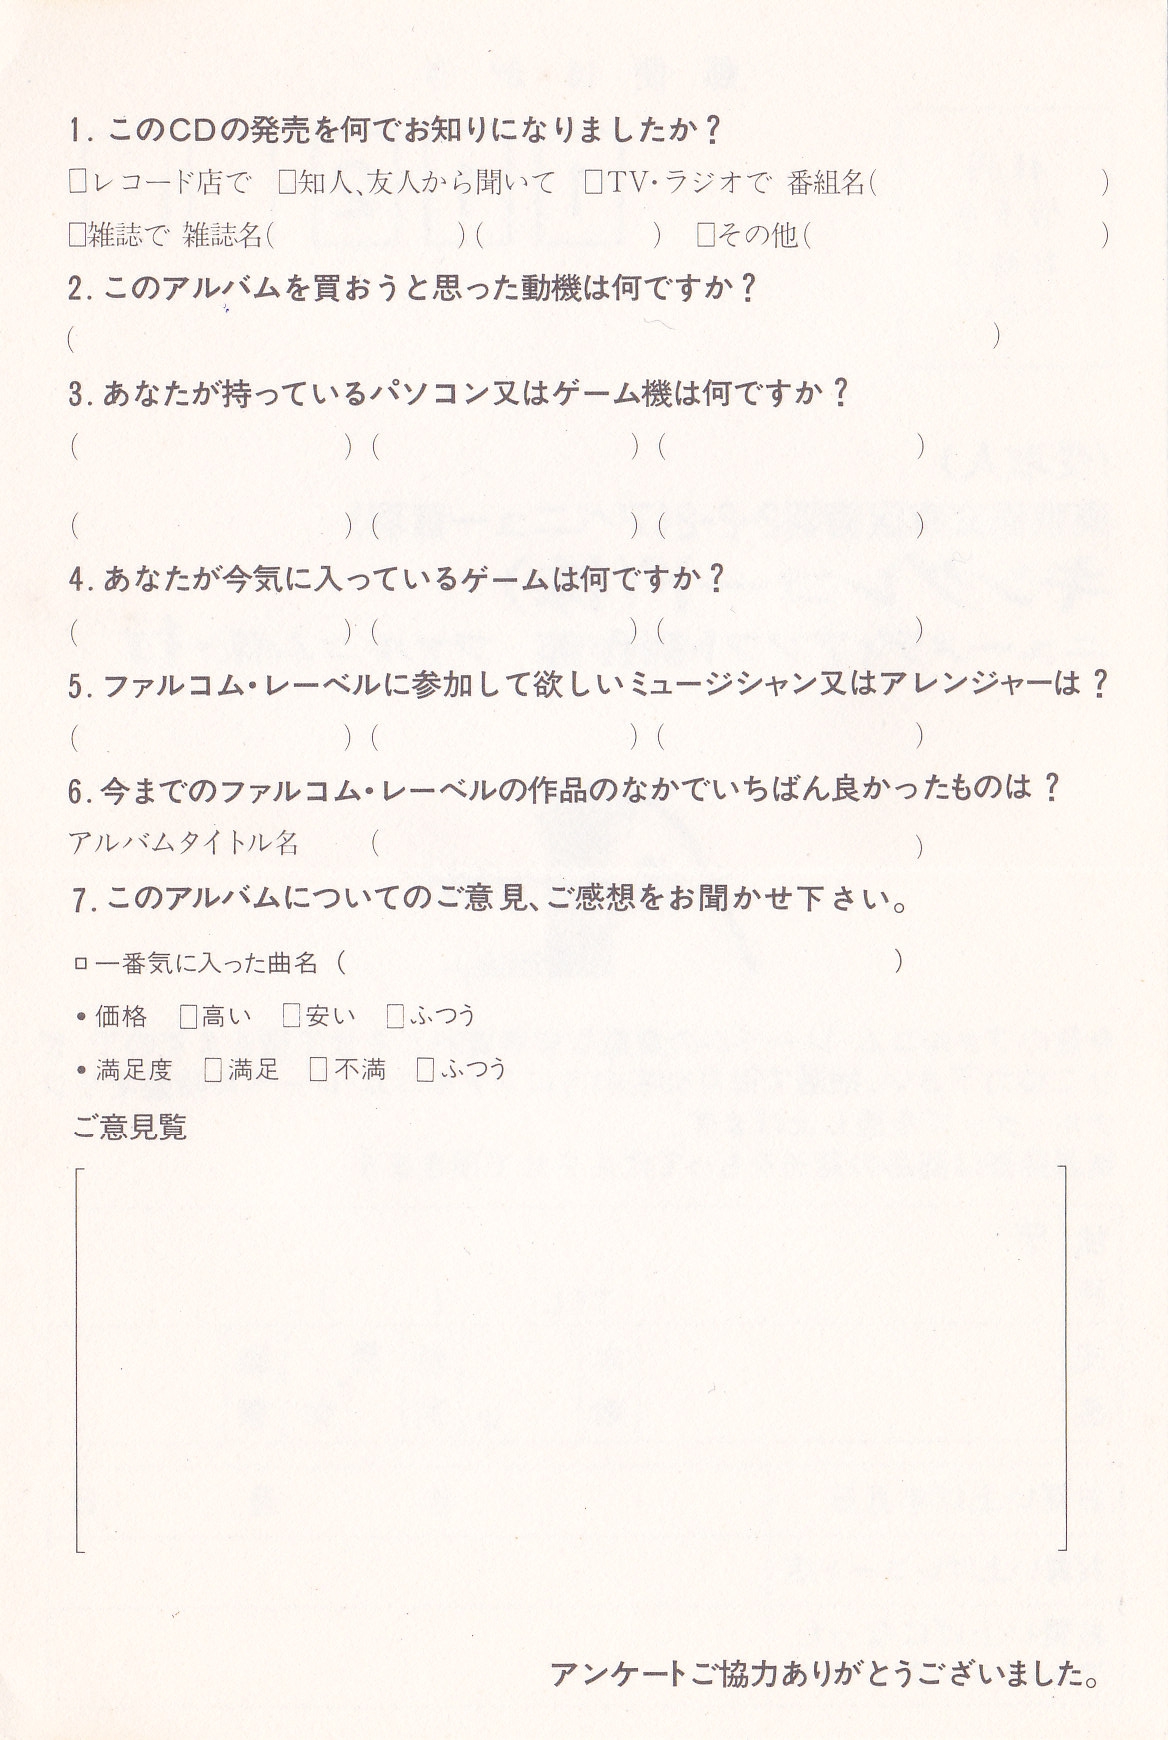 1. このCDの発売を何でお知りになりましたか？
□レコード店で □知人、友人から聞いて □TV・ラジオで 番組名( )
□雑誌で 雑誌名( )( ) □その他( )
2. このアルバムを買おうと思った動機は何ですか？
( )
3. あなたが持っているパソコン又はゲーム機は何ですか？
( )( )( )
( )( )( )
4. あなたが今気に入っているゲームは何ですか？
( )( )( )
5. ファルコム・レーベルに参加して欲しいミュージシャン又はアレンジャーは？
( )( )( )
6. 今までのファルコム・レーベルの作品のなかでいちばん良かったものは？
アルバムタイトル名 ( )
7. このアルバムについてのご意見、ご感想をお聞かせ下さい。
□一番気に入った曲名 ( )
・価格 □高い □安い □ふつう
・満足度 □満足 □不満 □ふつう
ご意見覧
[ ]
アンケートご協力ありがとうございました。